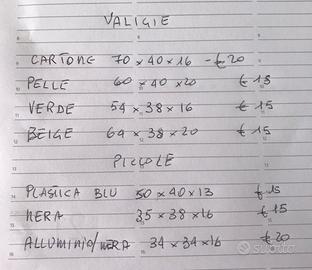 VALIGIE
CARTONE 70 x 40 x 16 - € 20
PELLE 60 x 40 x 20 € 15
VERDE 54 x 38 x 16 € 15
BEIGE 64 x 38 x 20 € 15
PICCOLE
PLASTICA BLU 50 x 40 x 13 € 15
NERA 35 x 38 x 16 € 15
ALLUMINIO/NERA 34 x 34 x 16 € 20
subito